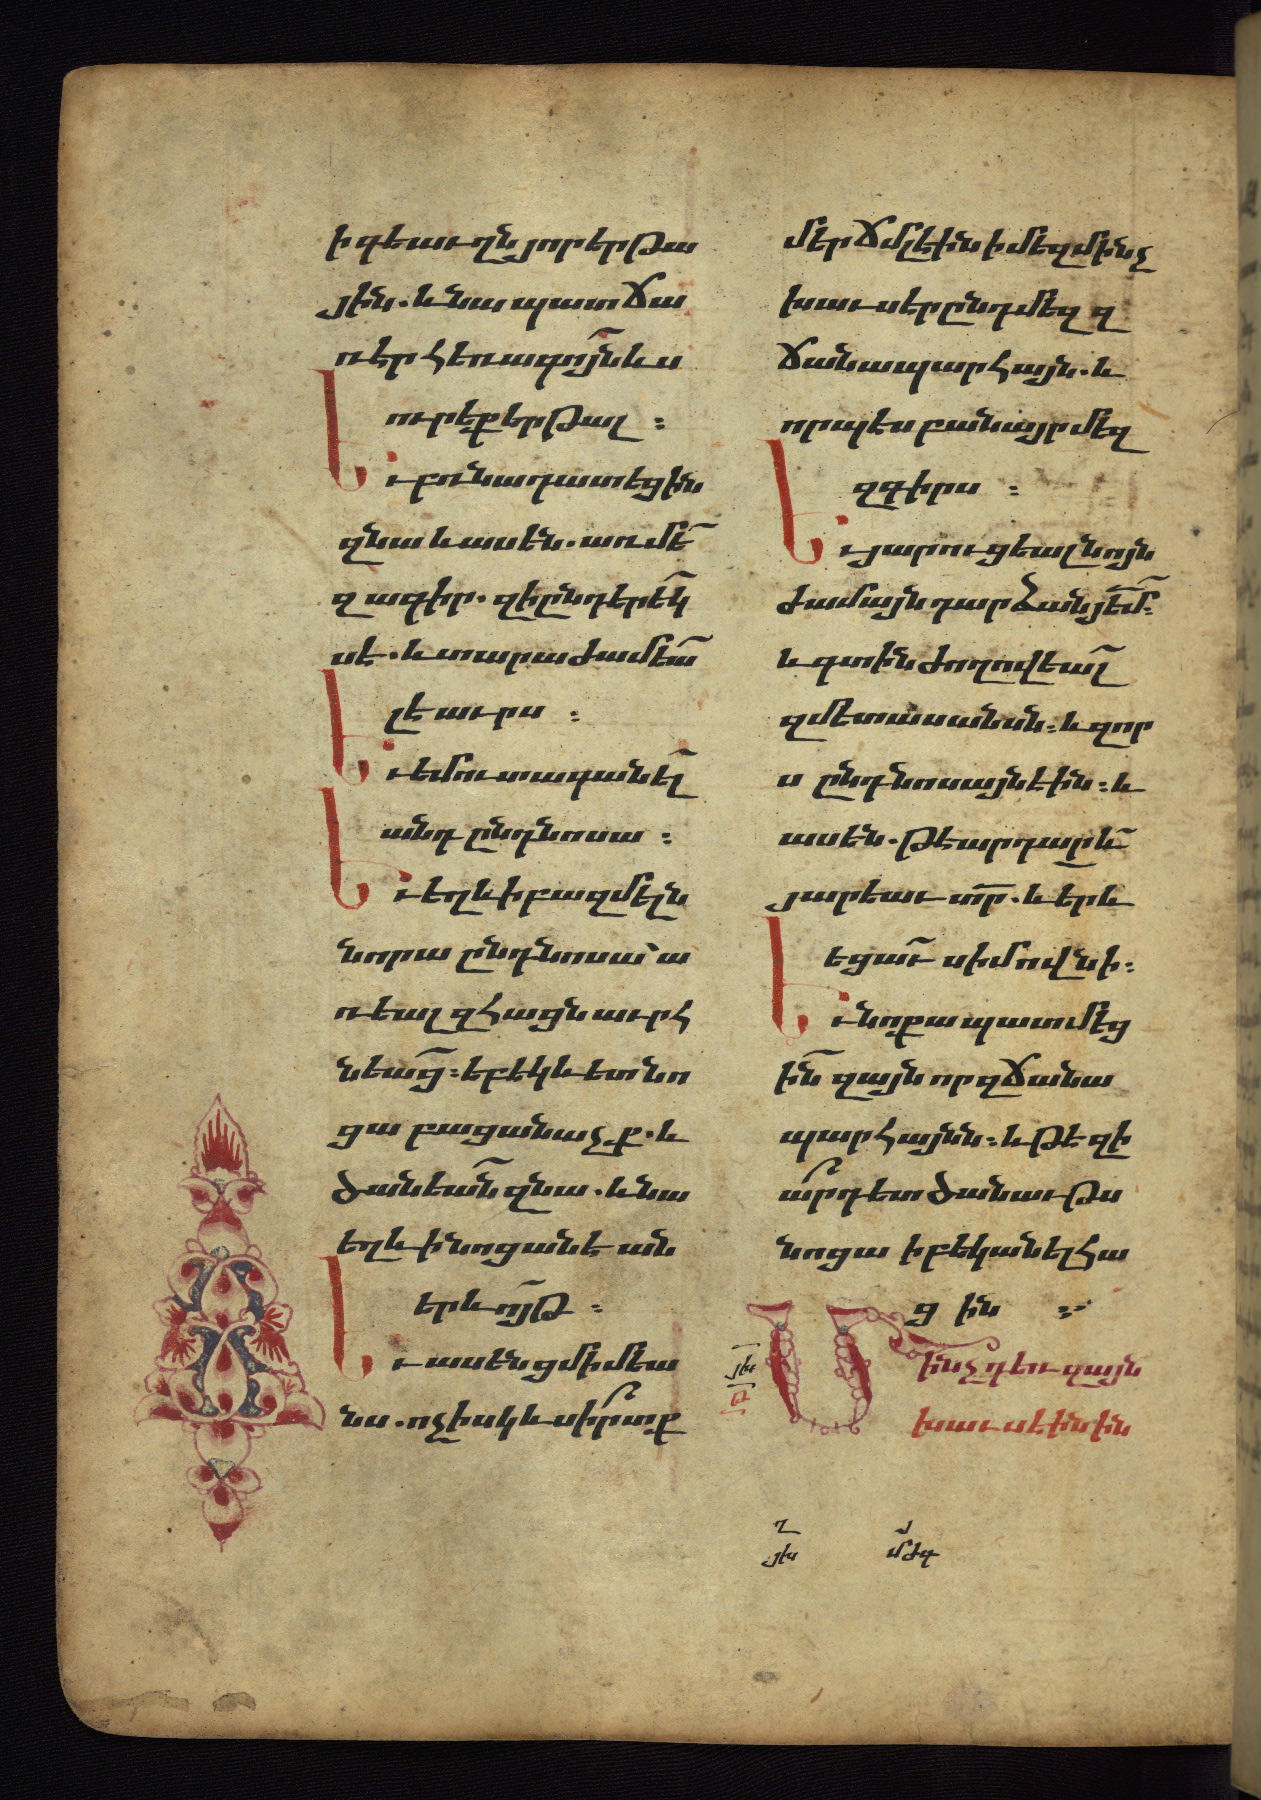 ի գեաւղն յոր երթա
յին. և նա պատճա
ռեր հեռագոյն ևս
ուրեք երթալ :
Եւ բռնադատեցին
զնա և ասեն. առ մե՟
զ ագիր. զի ընդ երեկ՟
սէ. և տարաժամեա՟
լ է աւրս :
Եւ եմուտ ագանել՟
անդ ընդ նոսա :
Եւ եղև ի բազմելն
նորա ընդ նոսա՝ ա
ռեալ զհացն աւրհ
նեաց՟ : եբեկ և ետ նո
ցա բացան աչք. և
ծանեան՟ զնա. և նա
եղև ի նոցանէ ան
երևոյթ՟ :
Եւ ասեն ցմիմեա
նս. ոչ իսկ և սիրտք
մեր ճմլէին ի մեզ մինչ
խաւսէր ընդ մեզ զ
ճանապարհայն. և
որպէս բանայր մեզ
զգիրս :
Եւ յարուցեալ նոյն
ժամայն դարձան յեմ՟ :
և գտին ժողովեալ՟
զմետասանսն : և զոր
ս ընդ նոսայն էին : և
ասեն. թէ արդարև՟
յարեաւ տր՟. և երև
եցաւ՟ սիմովնի :
Եւ նոքա պատմեց
ին՟ զայն որ զճանա
պարհայնն : և թէ զի
արդ ետ ծանաւթս
նոցա ի բեկանել հա
ց ին :
Մինչդեռ զայն
խաւսէին ին